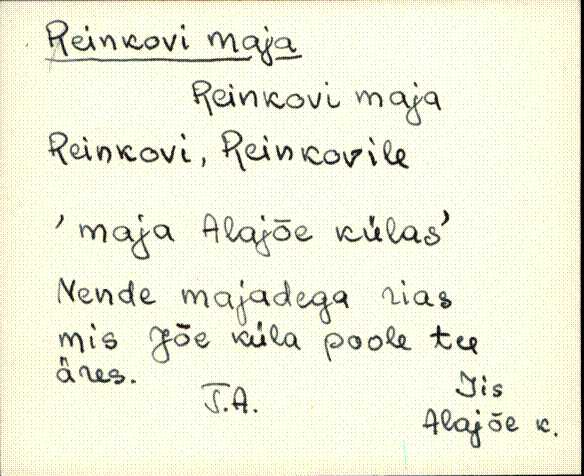 Reinkovi maja
Reinkovi maja
Reinkovi, Reinkovile
'maja Alajõe külas'
Nende majadega rias
mis Jõe küla poole tee
äres.
J.A.
Iis
Alajõe k.